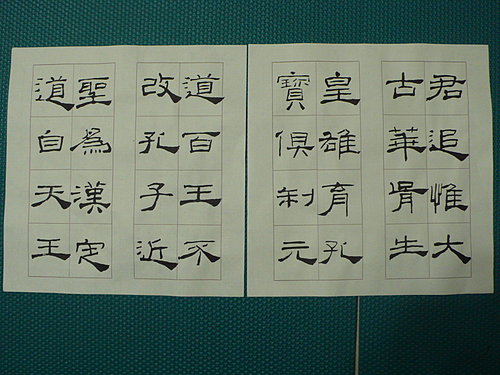 君追惟大
古華胥生
皇雄育孔
寶俱制元
道百王不
改孔子近
聖為漢定
道自天王